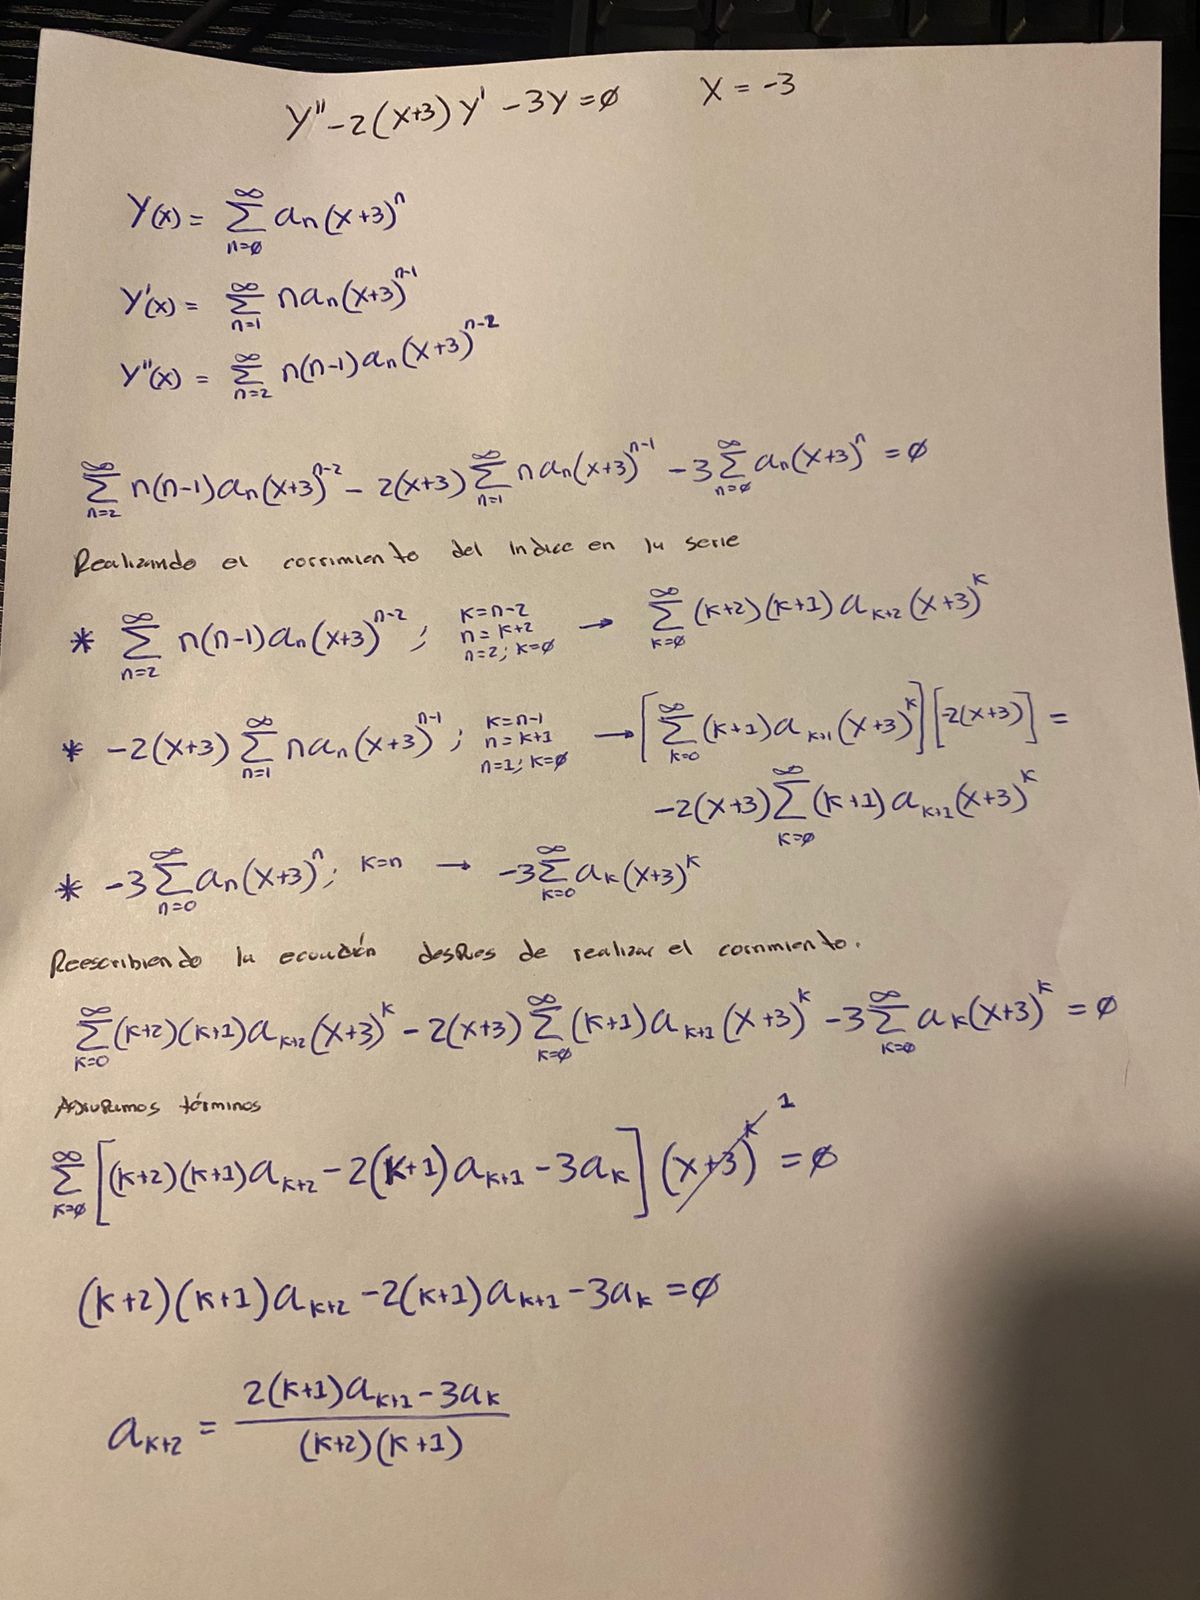 y'' - 2(x+3) y' - 3y = ∅    x = -3
y(x) = ∑_{n=∅}^{∞} a_n (x+3)^n
y'(x) = ∑_{n=1}^{∞} n a_n (x+3)^{n-1}
y''(x) = ∑_{n=2}^{∞} n(n-1) a_n (x+3)^{n-2}
∑_{n=2}^{∞} n(n-1) a_n (x+3)^{n-2} - 2(x+3) ∑_{n=1}^{∞} n a_n (x+3)^{n-1} - 3 ∑_{n=∅}^{∞} a_n (x+3)^n = ∅
Realizando el corrimiento del indice en la serie
* ∑_{n=2}^{∞} n(n-1) a_n (x+3)^{n-2} ; k=n-2 n=k+2 n=2; k=∅ → ∑_{k=∅}^{∞} (k+2)(k+1) a_{k+2} (x+3)^k
* -2(x+3) ∑_{n=1}^{∞} n a_n (x+3)^{n-1} ; k=n-1 n=k+1 n=1; k=∅ → [∑_{k=0}^{∞} (k+1) a_{k+1} (x+3)^k] [-2(x+3)] =
-2(x+3) ∑_{k=∅}^{∞} (k+1) a_{k+1} (x+3)^k
* -3 ∑_{n=0}^{∞} a_n (x+3)^n ; k=n → -3 ∑_{k=0}^{∞} a_k (x+3)^k
Reescribiendo la ecuación despues de realizar el corrimiento.
∑_{k=0}^{∞} (k+2)(k+1) a_{k+2} (x+3)^k - 2(x+3) ∑_{k=∅}^{∞} (k+1) a_{k+1} (x+3)^k - 3 ∑_{k=∅}^{∞} a_k (x+3)^k = ∅
Agrupamos términos
∑_{k=∅}^{∞} [(k+2)(k+1) a_{k+2} - 2(k+1) a_{k+1} - 3a_k] (x+3)^k 1 = ∅
(k+2)(k+1) a_{k+2} - 2(k+1) a_{k+1} - 3a_k = ∅
a_{k+2} = \frac{2(k+1) a_{k+1} - 3a_k}{(k+2)(k+1)}